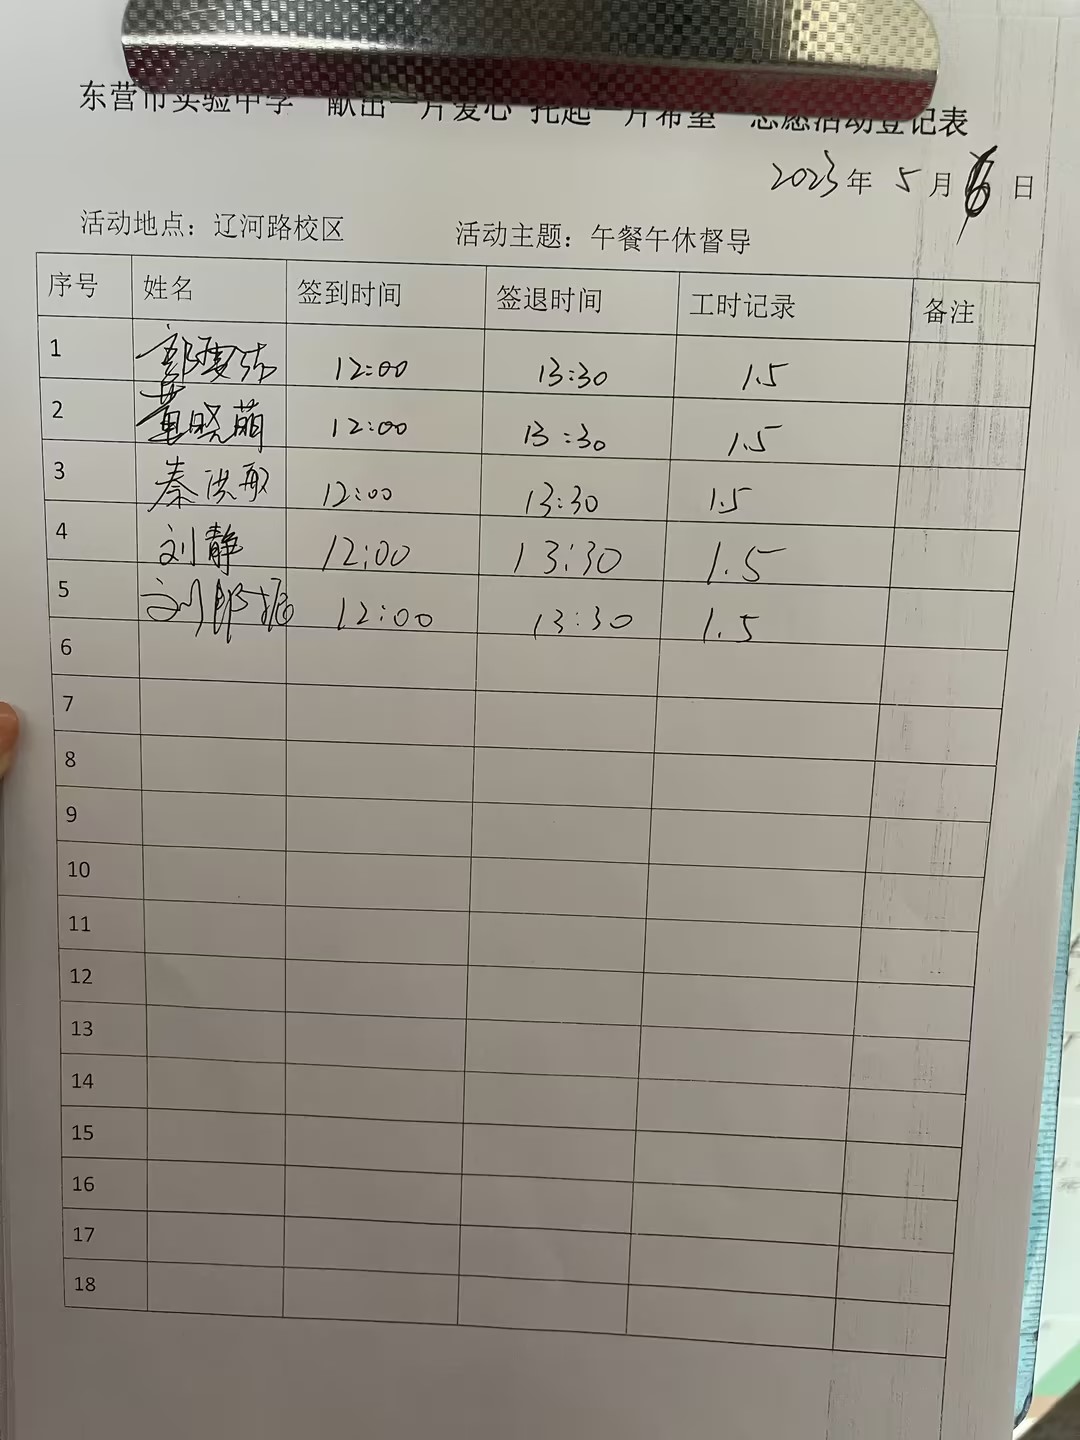 东营市实验中学 献出一片爱心 托起一片希望 志愿活动登记表
2023年 5月 日
活动地点：辽河路校区 活动主题：午餐午休督导
序号 姓名 签到时间 签退时间 工时记录 备注
1 12:00 13:30 1.5
2 董晓萌 12:00 13:30 1.5
3 秦洪敏 12:00 13:30 1.5
4 刘静 12:00 13:30 1.5
5 刘 12:00 13:30 1.5
6
7
8
9
10
11
12
13
14
15
16
17
18